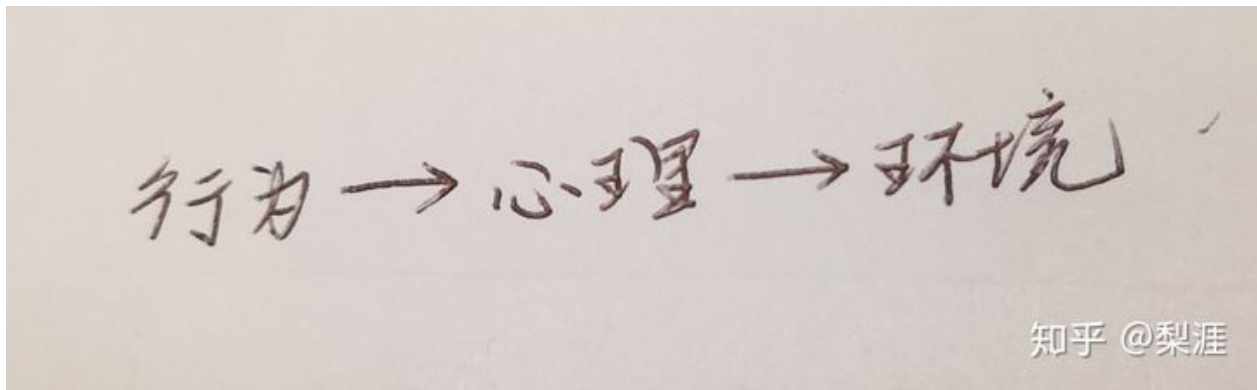 行为→心理→环境
知乎 @梨涯